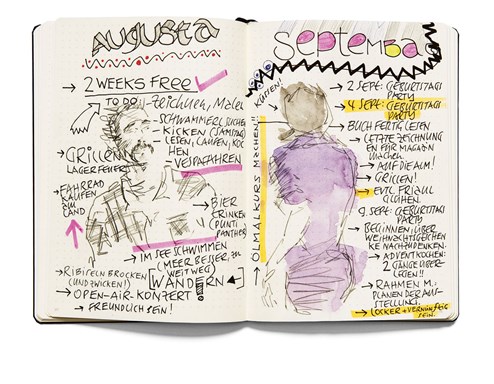 AUGUSTA
→ 2 WEEKS FREE
TO DO
- zeichnen, Malen
- SCHWAMMERL SUCHEN
- KICKEN (SAMSTAG)
- LESEN, LAUFEN, KOCHEN
- VESPAFAHREN
→ GRILLEN
LAGERFEUER
→ FAHRRAD
KAUFEN
AM
LAND
→ BIER
TRINKEN
PUNTI
PANTHER
→ IM SEE SCHWIMMEN
(MEER BESSER, ZU
WEIT WEG)
→ RIBISELN BROCKEN
(UND ZWICKEN!)
[WANDERN!]
→ OPEN-AIR-KONZERT
→ FREUNDLICH SEIN!
SEPTEMBA
KÜSSEN!
→ MALKURS MACHEN!!
→ 2 SEPT: GEBURTSTAGS
PARTY
→ 4 SEPT: GEBURTSTAGS
PARTY
→ BUCH FERTIG LESEN
→ LETZTE ZEICHNUNG
EN FÜR MAGAZIN
MACHEN
→ AUF DIE ALM!
→ GRILLEN!
→ EVTL. FRIAUL
9. SEPT: GEBURTSTAGS
PARTY
→ BEGINNEN, ÜBER
WEIHNACHTSGESCHENKE
NACHZUDENKEN.
→ ADVENTKOCHEN:
2 GÄNGE ÜBER-
LEGEN!!
→ RAHMEN M.:
PLANEN DER AUS-
STELLUNG.
→ LOCKER + VERNÜNFTIG
SEIN.